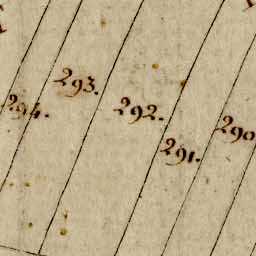 293.
294.
292.
291.
290